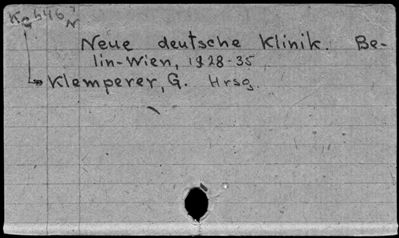 Ke 446
N
Neue deutsche Klinik. Be-
lin-Wien, 1928-35
Klemperer, G. Hrsg.